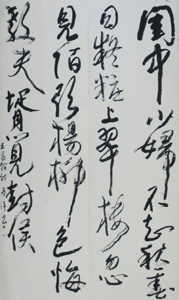 閨中少婦不知愁春
日凝粧上翠楼忽
見陌頭楊柳色悔
教夫婿覓封侯
王昌龄詩